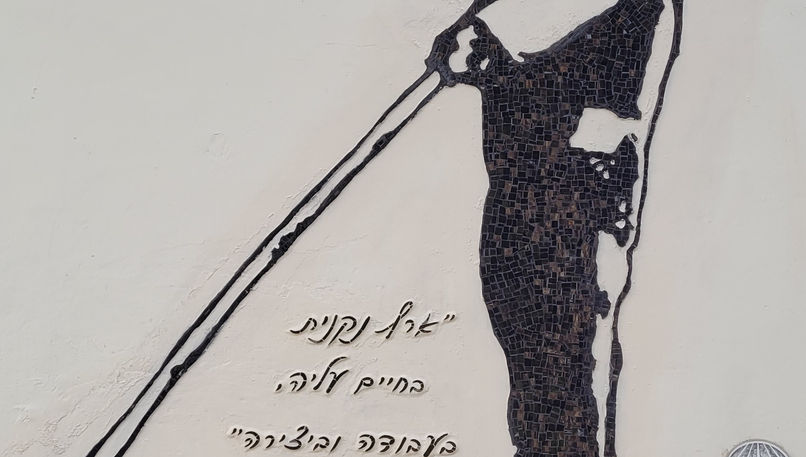 "ארץ נקנית
בחיים עליה,
בעבודה וביצירה"